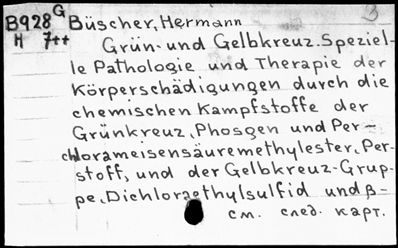 B928 G Büscher, Hermann
M 7++ Grün- und Gelbkreuz. Speziel-
le Pathologie und Therapie der
Körperschädigungen durch die
chemischen Kampfstoffe der
Grünkreuz, Phosgen und Per-
chlorameisensäuremethylester, Per-
stoff, und der Gelbkreuz-Grup-
pe, Dichloraethylsulfid und β-
см. след. карт.